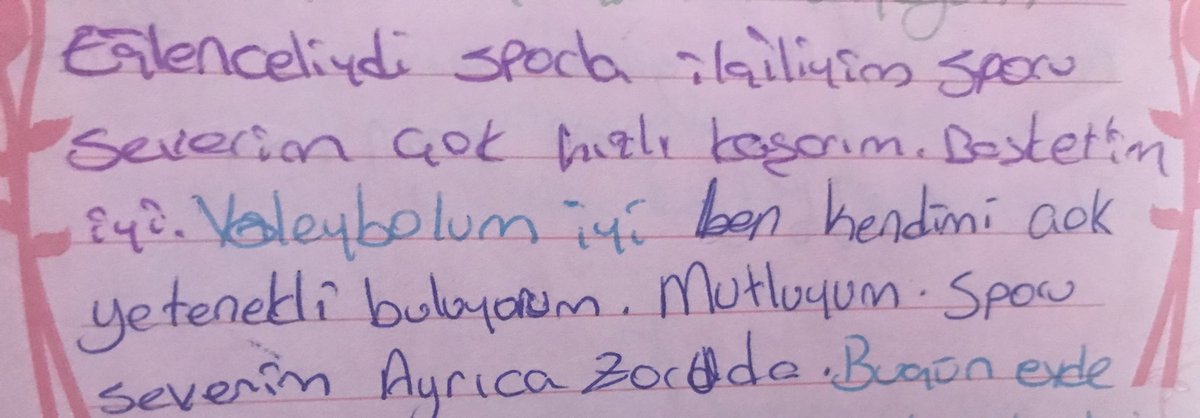 Eğlenceliydi sporla ilgiliyim sporu
severim çok hızlı koşarım. Basketim
iyi. Voleybolum iyi ben kendimi çok
yetenekli buluyorum. Mutluyum. Sporu
severim Ayrıca zorda. Bugün evde